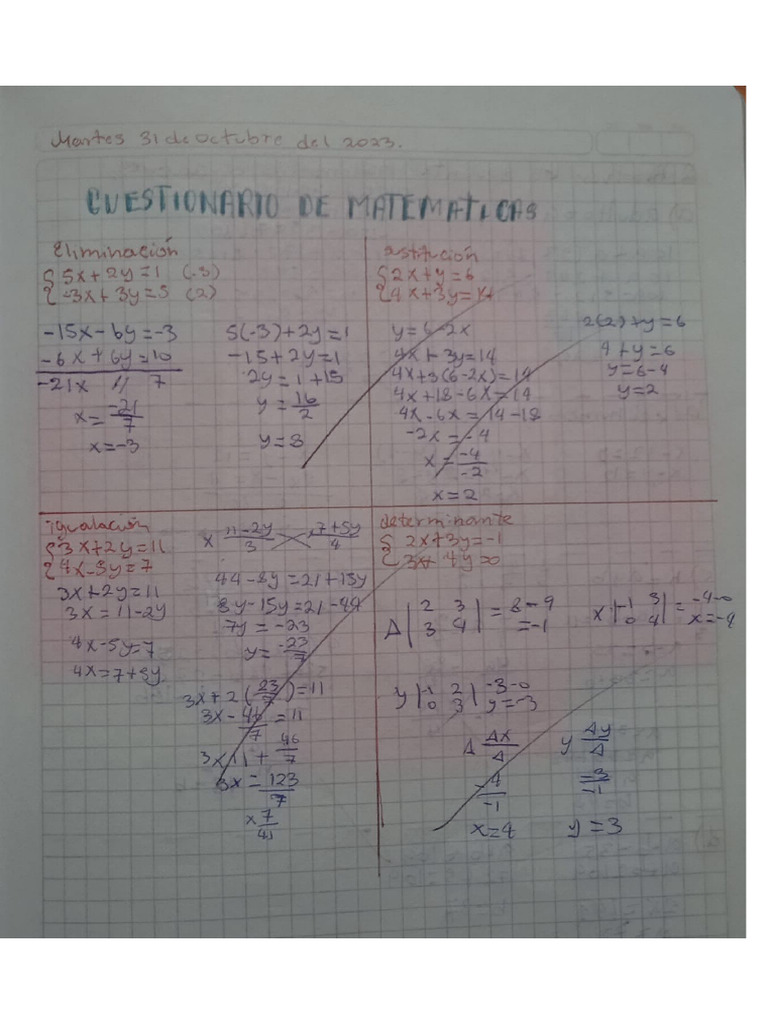 Martes 31 de octubre del 2023.
CUESTIONARIO DE MATEMATICAS
Eliminación
5x+2y=1 (-3)
-3x+3y=5 (2)
-15x-6y=-3
-6x+6y=10
-21x // 7
x=-21/7
x=-3
5(-3)+2y=1
-15+2y=1
2y=1+15
y=16/2
y=8
ustitución
2x+y=6
4x+3y=14
y=6-2x
4x+3y=14
4x+3(6-2x)=14
4x+18-6x=14
4x-6x=14-18
-2x=-4
x=-4/-2
x=2
2(2)+y=6
4+y=6
y=6-4
y=2
igualación
3x+2y=11
4x-5y=7
3x+2y=11
3x=11-2y
4x-5y=7
4x=7+5y
x 11-2y/3 x 7+5y/4
44-8y=21+15y
8y-15y=21-44
7y=-23
y=-23/7
3x+2(23/7)=11
3x-46/7=11
3x11+46/7
3x=123/7
x 7/41
determinante
2x+3y=-1
3x+4y=0
Δ|2 3|=8-9
|3 4|=-1
x|-1 3|=-4-0
|0 4| x=-4
y|-1 2|-3-0
|0 3| y=-3
Δ Δx/Δ
-4/-1
x=4
y Δy/Δ
=-3/-1
y=3